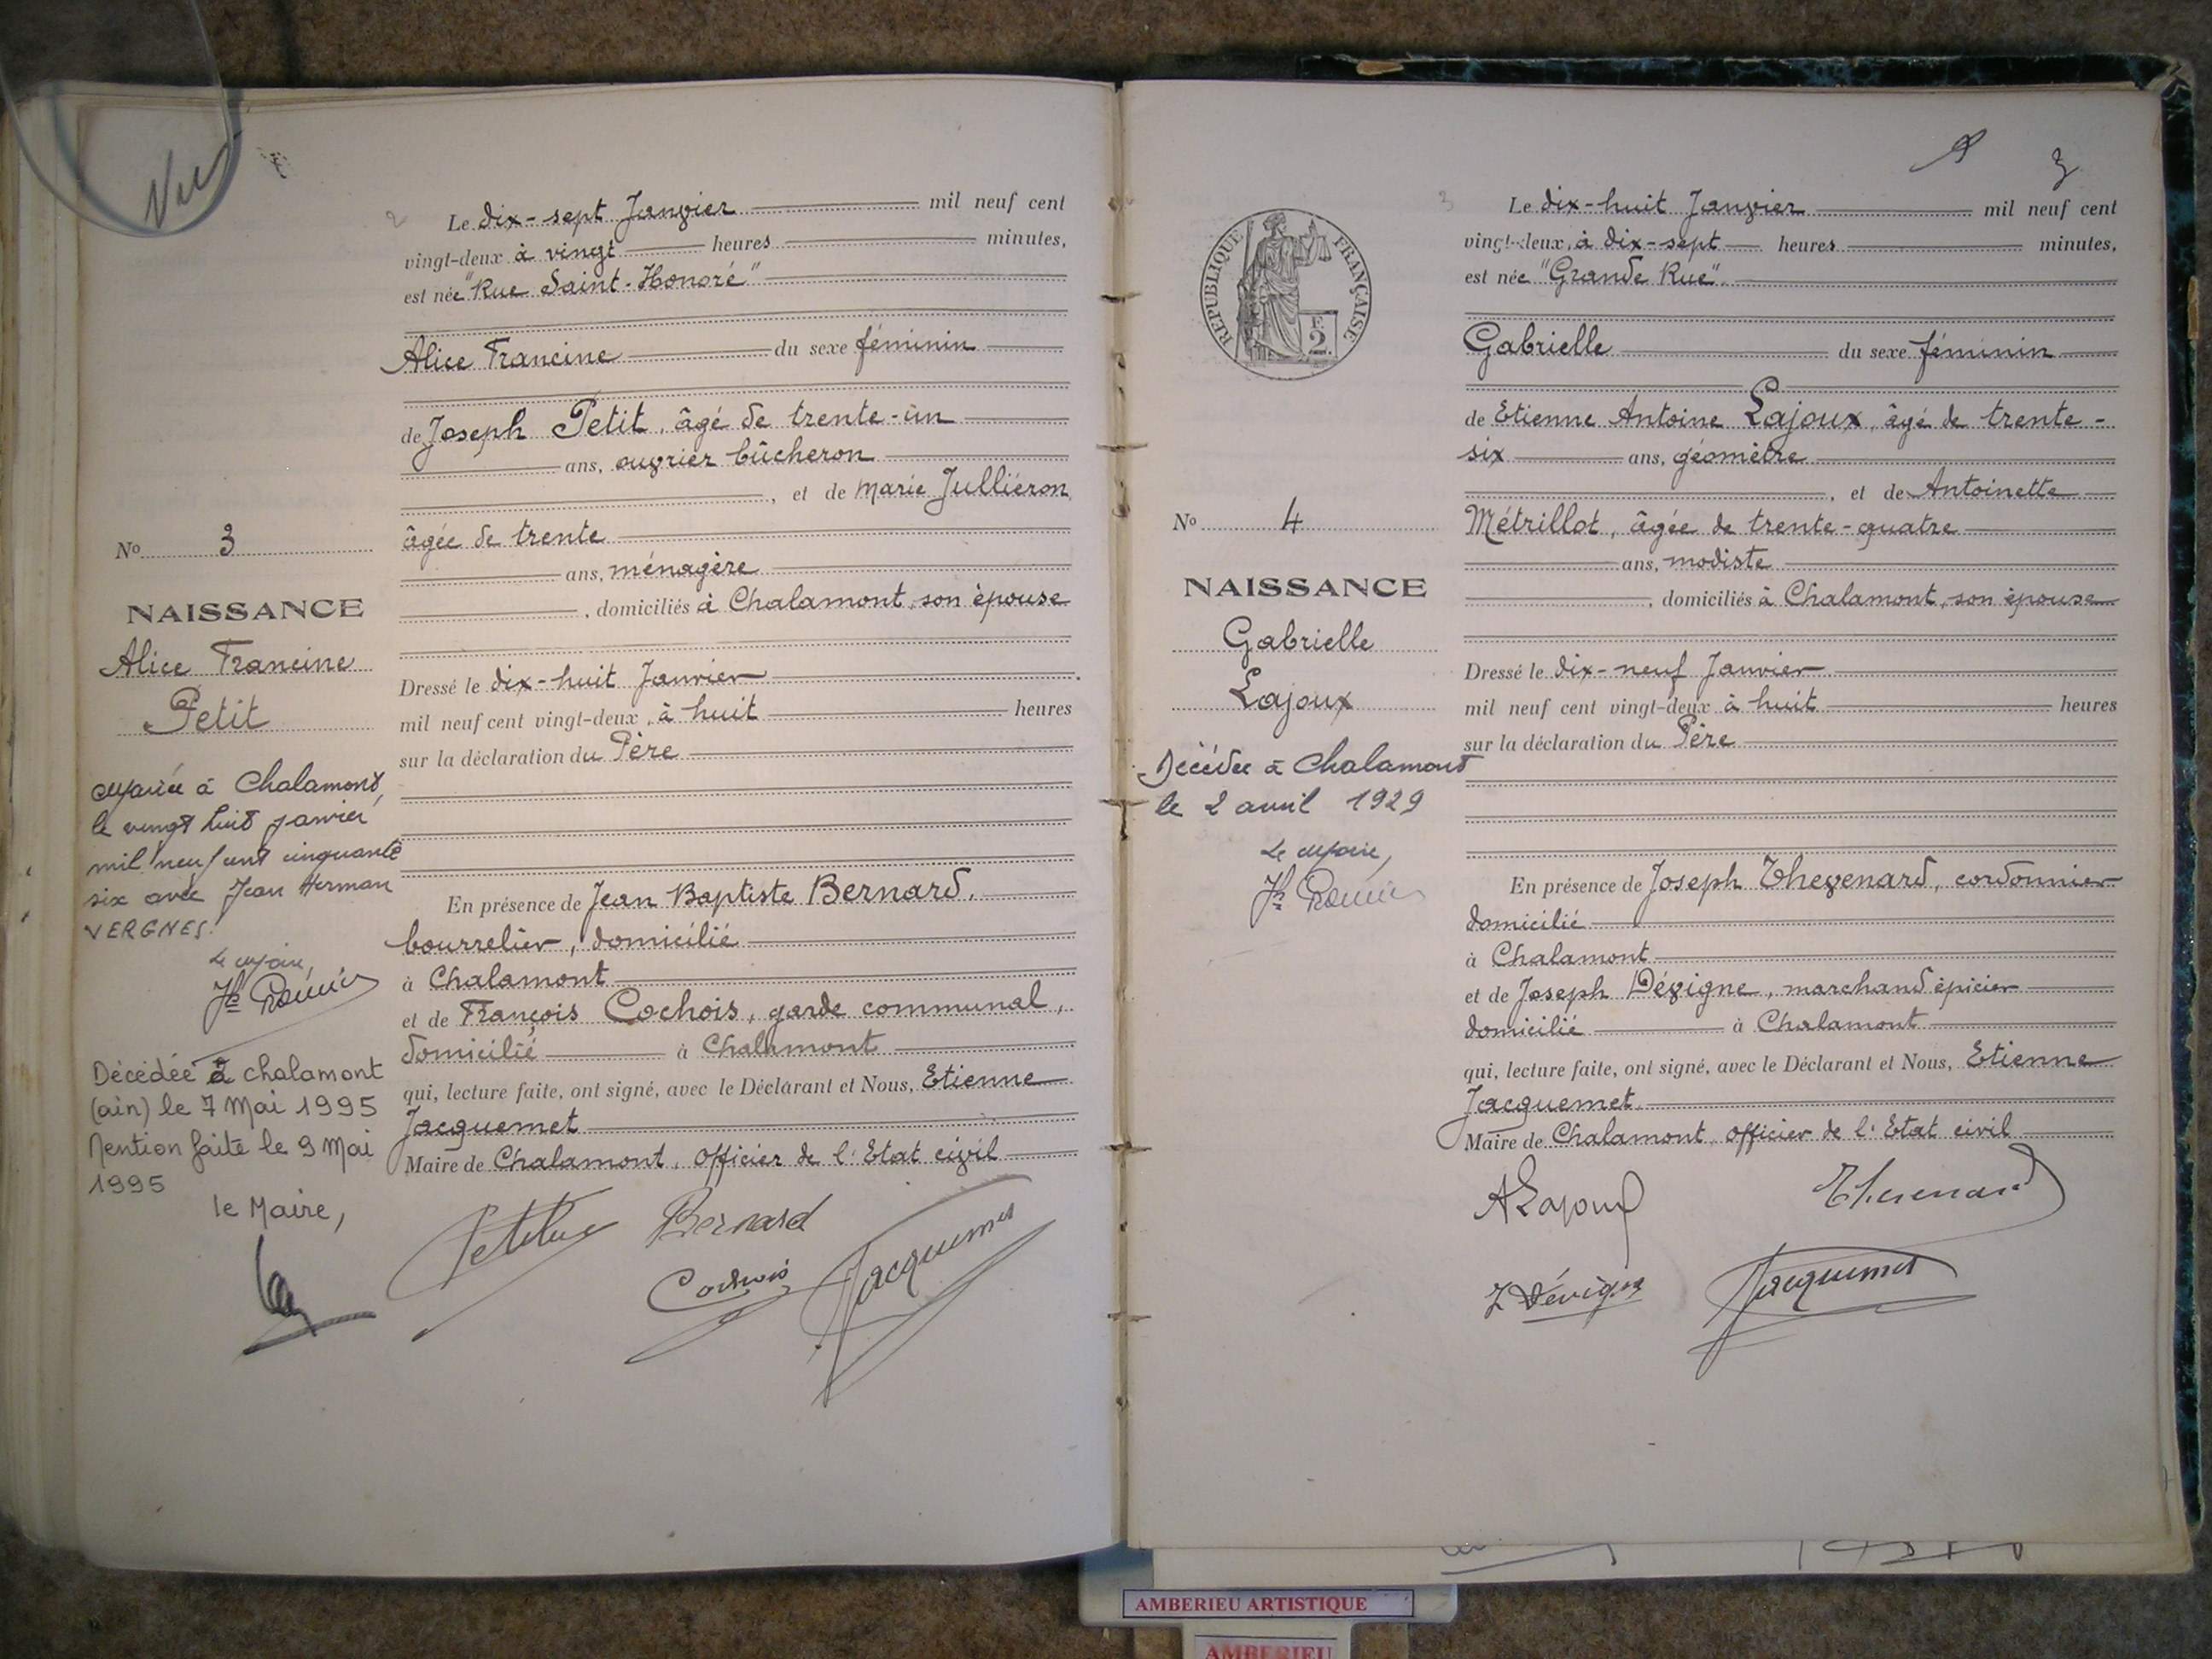 Vu
2
Le dix-sept Janvier mil neuf cent
vingt-deux à vingt heures minutes,
est née "Rue Saint-Honoré"
Alice Francine du sexe féminin
de Joseph Petit, âgé de trente-un
ans, ouvrier bûcheron
, et de Marie Julliéron
âgée de trente
ans, ménagère
, domiciliés à Chalamont, son épouse
Dressé le dix-huit Janvier
mil neuf cent vingt-deux, à huit heures
sur la déclaration du Père
En présence de Jean Baptiste Bernard,
bourrelier, domicilié
à Chalamont
et de François Cochois, garde communal,
domicilié à Chalamont
qui, lecture faite, ont signé, avec le Déclarant et Nous, Etienne
Jacquemet
Maire de Chalamont, Officier de l'Etat civil
Bernard
Cochois
Jacquemet
No 3
NAISSANCE
Alice Francine
Petit
Mariée à Chalamont,
le vingt huit janvier
mil neuf cent cinquante
six avec Jean Herman
VERGNES.
Le Maire,
Décédée à Chalamont
(ain) le 7 Mai 1995
Mention faite le 9 Mai
1995
le Maire,
3
3
Le dix-huit Janvier mil neuf cent
vingt-deux, à dix-sept heures minutes,
est née "Grande Rue".
Gabrielle du sexe féminin
de Etienne Antoine Lajoux, âgé de trente-
six ans, géomètre
, et de Antoinette
Métrillot, âgée de trente-quatre
ans, modiste
, domiciliés à Chalamont, son épouse
Dressé le dix-neuf Janvier
mil neuf cent vingt-deux à huit heures
sur la déclaration du Père
En présence de Joseph Thevenard, cordonnier
domicilié
à Chalamont
et de Joseph Dévigne, marchand épicier
domicilié à Chalamont
qui, lecture faite, ont signé, avec le Déclarant et Nous, Etienne
Jacquemet
Maire de Chalamont, Officier de l'Etat civil
ALajoux
Thevenard
J Dévigne
Jacquemet
REPUBLIQUE FRANÇAISE
F.
2.
No 4
NAISSANCE
Gabrielle
Lajoux
Décédée à Chalamont
le 2 avril 1929
Le Maire,
AMBERIEU ARTISTIQUE
AMBERIEU